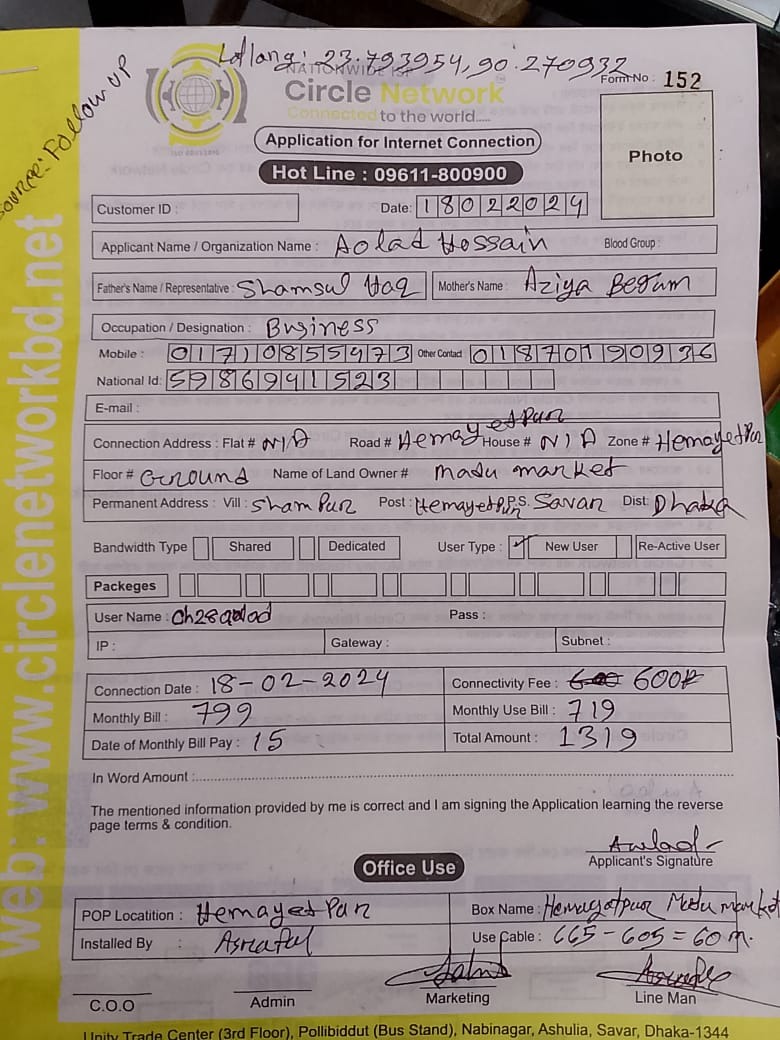 Lat lang: 23.793954, 90.270932
Source: Follow UP
NATIONWIDE ISP
Circle Network
Connected to the world.....
Form No : 152
Application for Internet Connection
Hot Line : 09611-800900
Photo
Customer ID :
Date: 18022024
Applicant Name / Organization Name : Aolad Hossain Blood Group :
Father's Name / Representative : Shamsul Haq Mother's Name : Aziya Begum
Occupation / Designation : Business
Mobile : 01710855473 Other Contact 01870190936
National Id: 5986941523
E-mail :
Connection Address : Flat # N/A Road # Hemayetpur House # N/A Zone # Hemayetpur
Floor # Ground Name of Land Owner # Madu market
Permanent Address : Vill : Shampur Post : Hemayetpur P.S. Savar Dist: Dhaka
Bandwidth Type Shared Dedicated User Type : ✓ New User Re-Active User
Packeges
User Name : Ch28aolad Pass :
IP : Gateway : Subnet :
Connection Date : 18-02-2024 Connectivity Fee : 600
Monthly Bill : 799 Monthly Use Bill : 719
Date of Monthly Bill Pay : 15 Total Amount : 1319
In Word Amount :
The mentioned information provided by me is correct and I am signing the Application learning the reverse
page terms & condition.
Awlad
Applicant's Signature
Office Use
POP Locatition : Hemayetpur Box Name : Hemayetpur Madu market
Installed By : Asraful Use Cable : 665-605=60 m.
C.O.O Admin Marketing Line Man
Unity Trade Center (3rd Floor), Pollibiddut (Bus Stand), Nabinagar, Ashulia, Savar, Dhaka-1344
web: www.circlenetworkbd.net